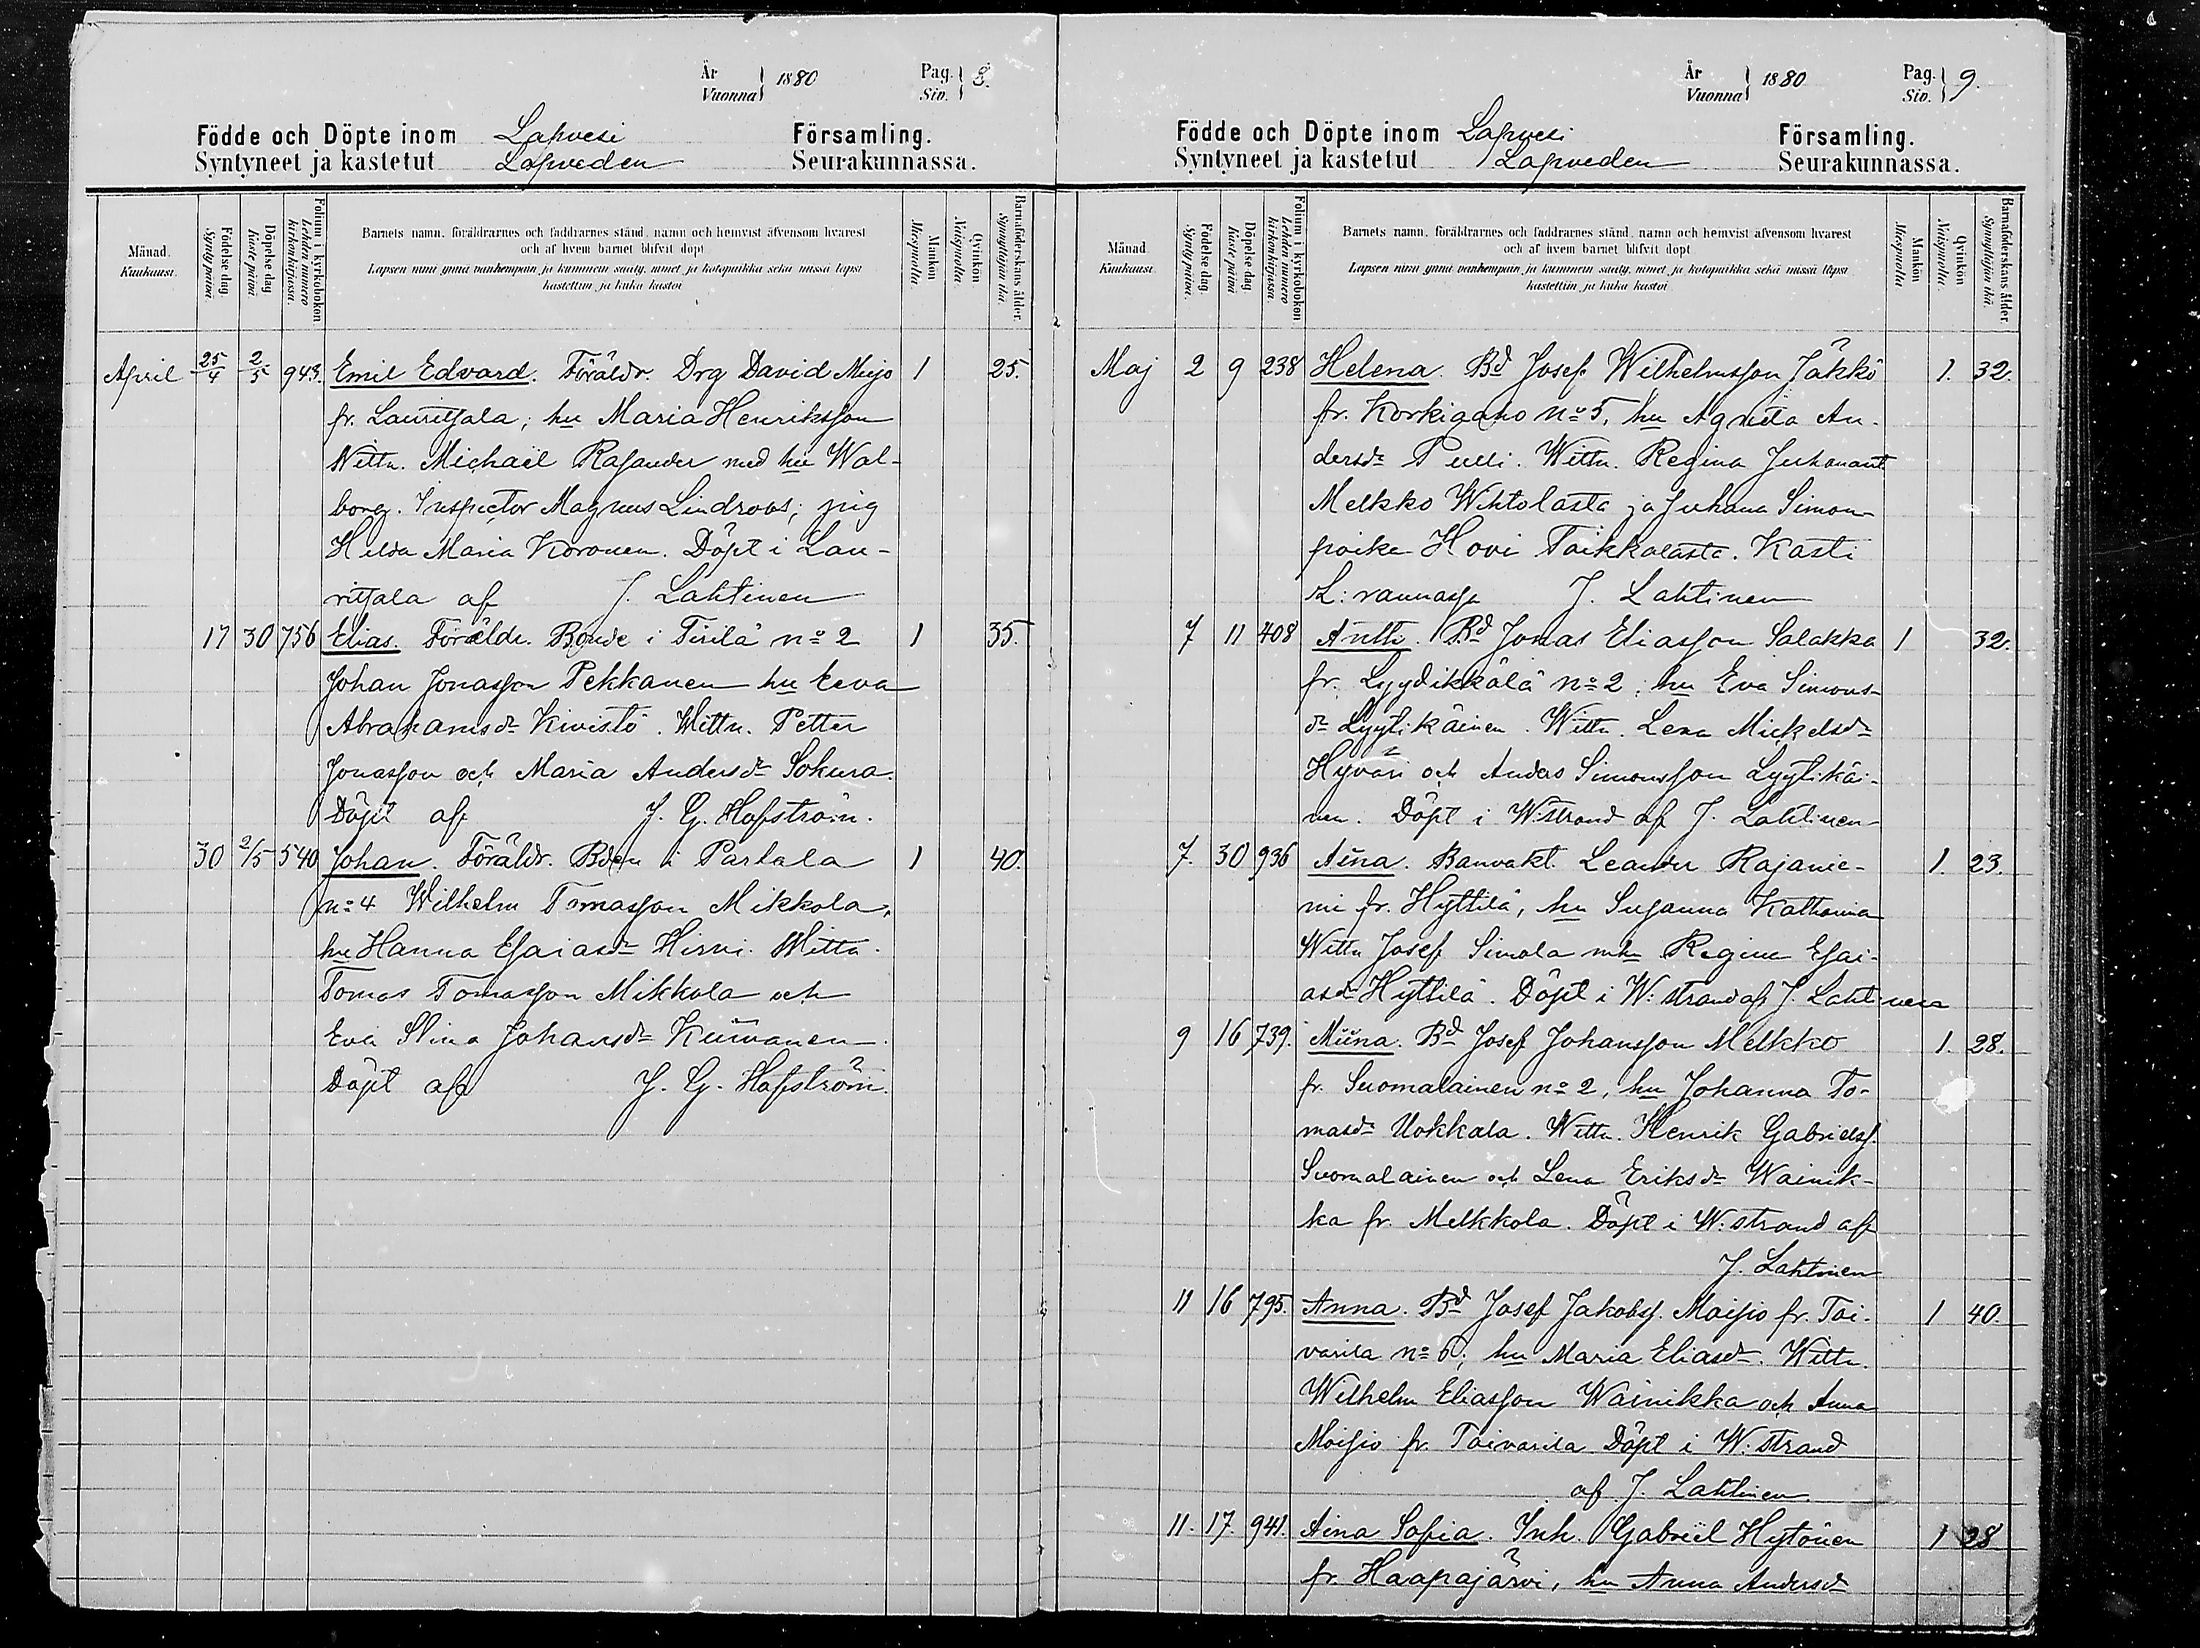 År
Vuonna } 1880
Pag.
Siv. } 8.
Födde och Döpte inom Lapvesi Församling.
Syntyneet ja kastetut Lapveden Seurakunnassa.
Månad.
Kuukausi.
Födelse dag
Synty päivä
Döpelse dag
Kaste päivä
Folium i kyrkoboken
Lehden numero kirkonkirjassa
Barnets namn, föräldrarnes och faddrarnes stånd, namn och hemvist äfvensom hvarest
och af hvem barnet blifvit döpt
Lapsen nimi ynnä vanhempain ja kummein sääty, nimet ja kotopaikka sekä missä lapsi
kastettiin ja kuka kastoi
Mankön
Miespuolta
Qvinkön
Naispuolta
Barnaföderskans ålder.
Synnyttäjän ikä.
April 25/4 2/5 943. Emil Edvard. Föräldr. Drg David Mujo 1 25.
fr. Lauritsala; hu Maria Henriksson
Wittn. Michael Rasander med hu Wal-
borg. Inspector Magnus Lindroos; pig
Hilda Maria Koronen. Döpt i Lau-
ritsala af J. Lahtinen
17 30 756 Elias. Föräldr. Bonde i Tirilä no 2 1 35.
Johan Jonasson Pekkanen hu Eeva
Abrahamsdr Kivistö. Wittn. Petter
Jonasson och Maria Andersdr Sokura.
Döpt af J. G. Hofström.
30 2/5 540 Johan. Föräldr. Bden i Partala 1 40.
no 4 Wilhelm Tomasson Mikkola,
hu Hanna Esaiasdr Hirvi. Wittn.
Tomas Tomasson Mikkola och
Eva Stina Johansdr Kuivanen
Döpt af J. G. Hofström.
År
Vuonna } 1880
Pag.
Siv. } 9.
Födde och Döpte inom Lapvesi Församling.
Syntyneet ja kastetut Lapveden Seurakunnassa.
Månad.
Kuukausi.
Födelse dag.
Synty päivä.
Döpelse dag
Kaste päivä
Folium i kyrkoboken
Lehden numero kirkonkirjassa
Barnets namn, föräldrarnes och faddrarnes stånd, namn och hemvist äfvensom hvarest
och af hvem barnet blifvit döpt
Lapsen nimi ynnä vanhempain ja kummein sääty, nimet ja kotopaikka sekä missä lapsi
kastettiin ja kuka kastoi
Mankön
Miespuolta
Qvinkön
Naispuolta.
Barnaföderskans ålder.
Synnyttäjän ikä.
Maj 2 9 238 Helena. Bd Josef Wilhelmsson Jäkkö 1. 32.
fr. Korkiaaho no 5, hu Agneta An-
dersdr Pulli. Wittn. Regina Juhanant
Melkko Wihtolasta ja Juhana Simon
poika Hovi Toikkalasta. Kasti
L: rannassa J. Lahtinen
7 11 408 Antti. Bd Jonas Eliasson Salakka 1 32.
fr. Lyydikkälä no 2; hu Eva Simons-
dr Lyytikäinen. Wittn. Lena Mickelsdr
Hyväri och Anders Simonsson Lyytikäi-
nen. Döpt i W:strand af J. Lahtinen
7. 30 936 Aina. Banvakt. Leander Rajanie- 1. 23.
mi fr. Hyttilä, hu Susanna Katharina
Wittn Josef Simola mhu Regina Esai-
asdr Hyttilä. Döpt i W: strand af J. Lahtinen
9 16 739. Miina. Bd Josef Johansson Melkko 1. 28.
fr. Suomalainen no 2, hu Johanna To-
masdr Uokkala. Wittn. Henrik Gabrielss.
Suomalainen och Lena Eriksdr Wainik-
ka fr. Melkkola. Döpt i W: strand af
J. Lahtinen
11 16 795. Anna. Bd Josef Jakobss. Moisio fr. Toi- 1 40.
varila no 6; hu Maria Eliasdr. Wittn.
Wilhelm Eliasson Wainikka och Anna
Moisio fr. Toivarila Döpt i W: strand
af J. Lahtinen.
11. 17. 941. Aina Sofia. Inh. Gabriel Hytönen 1 28
fr. Haapajärvi, hu Anna Andersdr